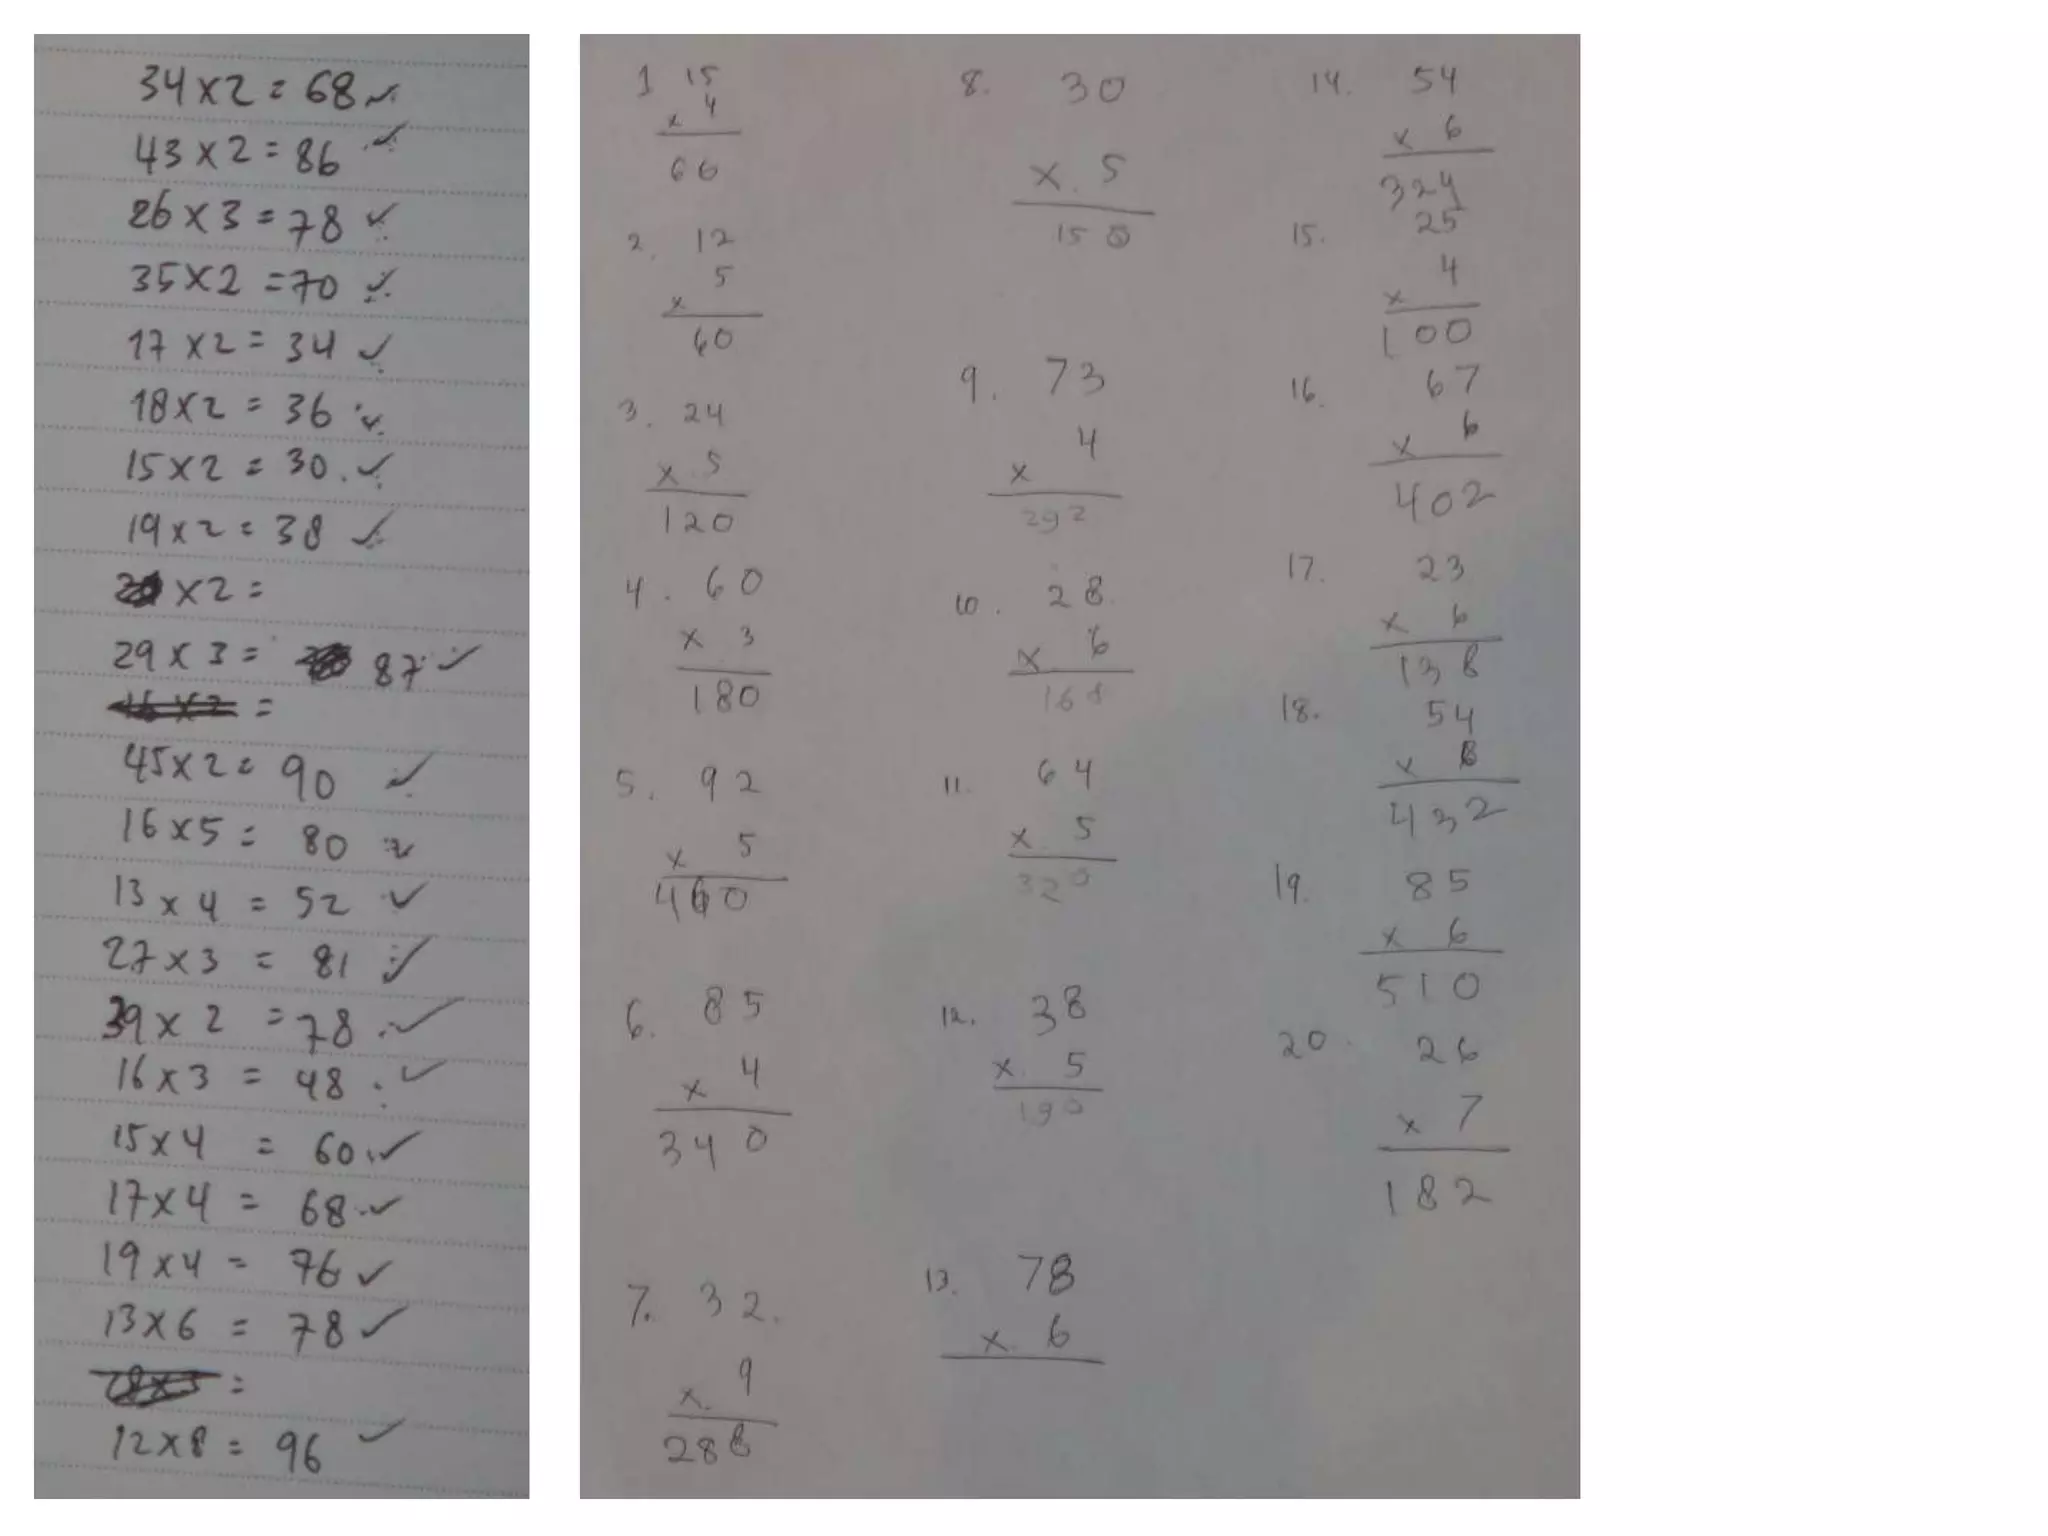 34 x 2 = 68 ✓
43 x 2 = 86 ✓
26 x 3 = 78 ✓
35 x 2 = 70 ✓
17 x 2 = 34 ✓
18 x 2 = 36 ✓
15 x 2 = 30. ✓
19 x 2 = 38 ✓
x 2 =
29 x 3 = 87 ✓
=
45 x 2 = 90 ✓
16 x 5 = 80 ✓
13 x 4 = 52 ✓
27 x 3 = 81 ✓
39 x 2 = 78 ✓
16 x 3 = 48 ✓
15 x 4 = 60 ✓
17 x 4 = 68 ✓
19 x 4 = 76 ✓
13 x 6 = 78 ✓
=
12 x 8 = 96 ✓
1 15
x 4
60
2. 12
5
x
60
3. 24
x 5
120
4. 60
x 3
180
5. 92
x 5
460
6. 85
x 4
340
7. 32.
x. 9
288
8. 30
x. 5
150
9. 73
4
x
292
10. 28
x 6
168
11. 64
x 5
320
12. 38
x 5
190
13. 78
x 6
14. 54
x 6
324
15. 25
x 4
100
16. 67
x 6
402
17. 23
x 6
138
18. 54
x 8
432
19. 85
x 6
510
20. 26
x 7
182